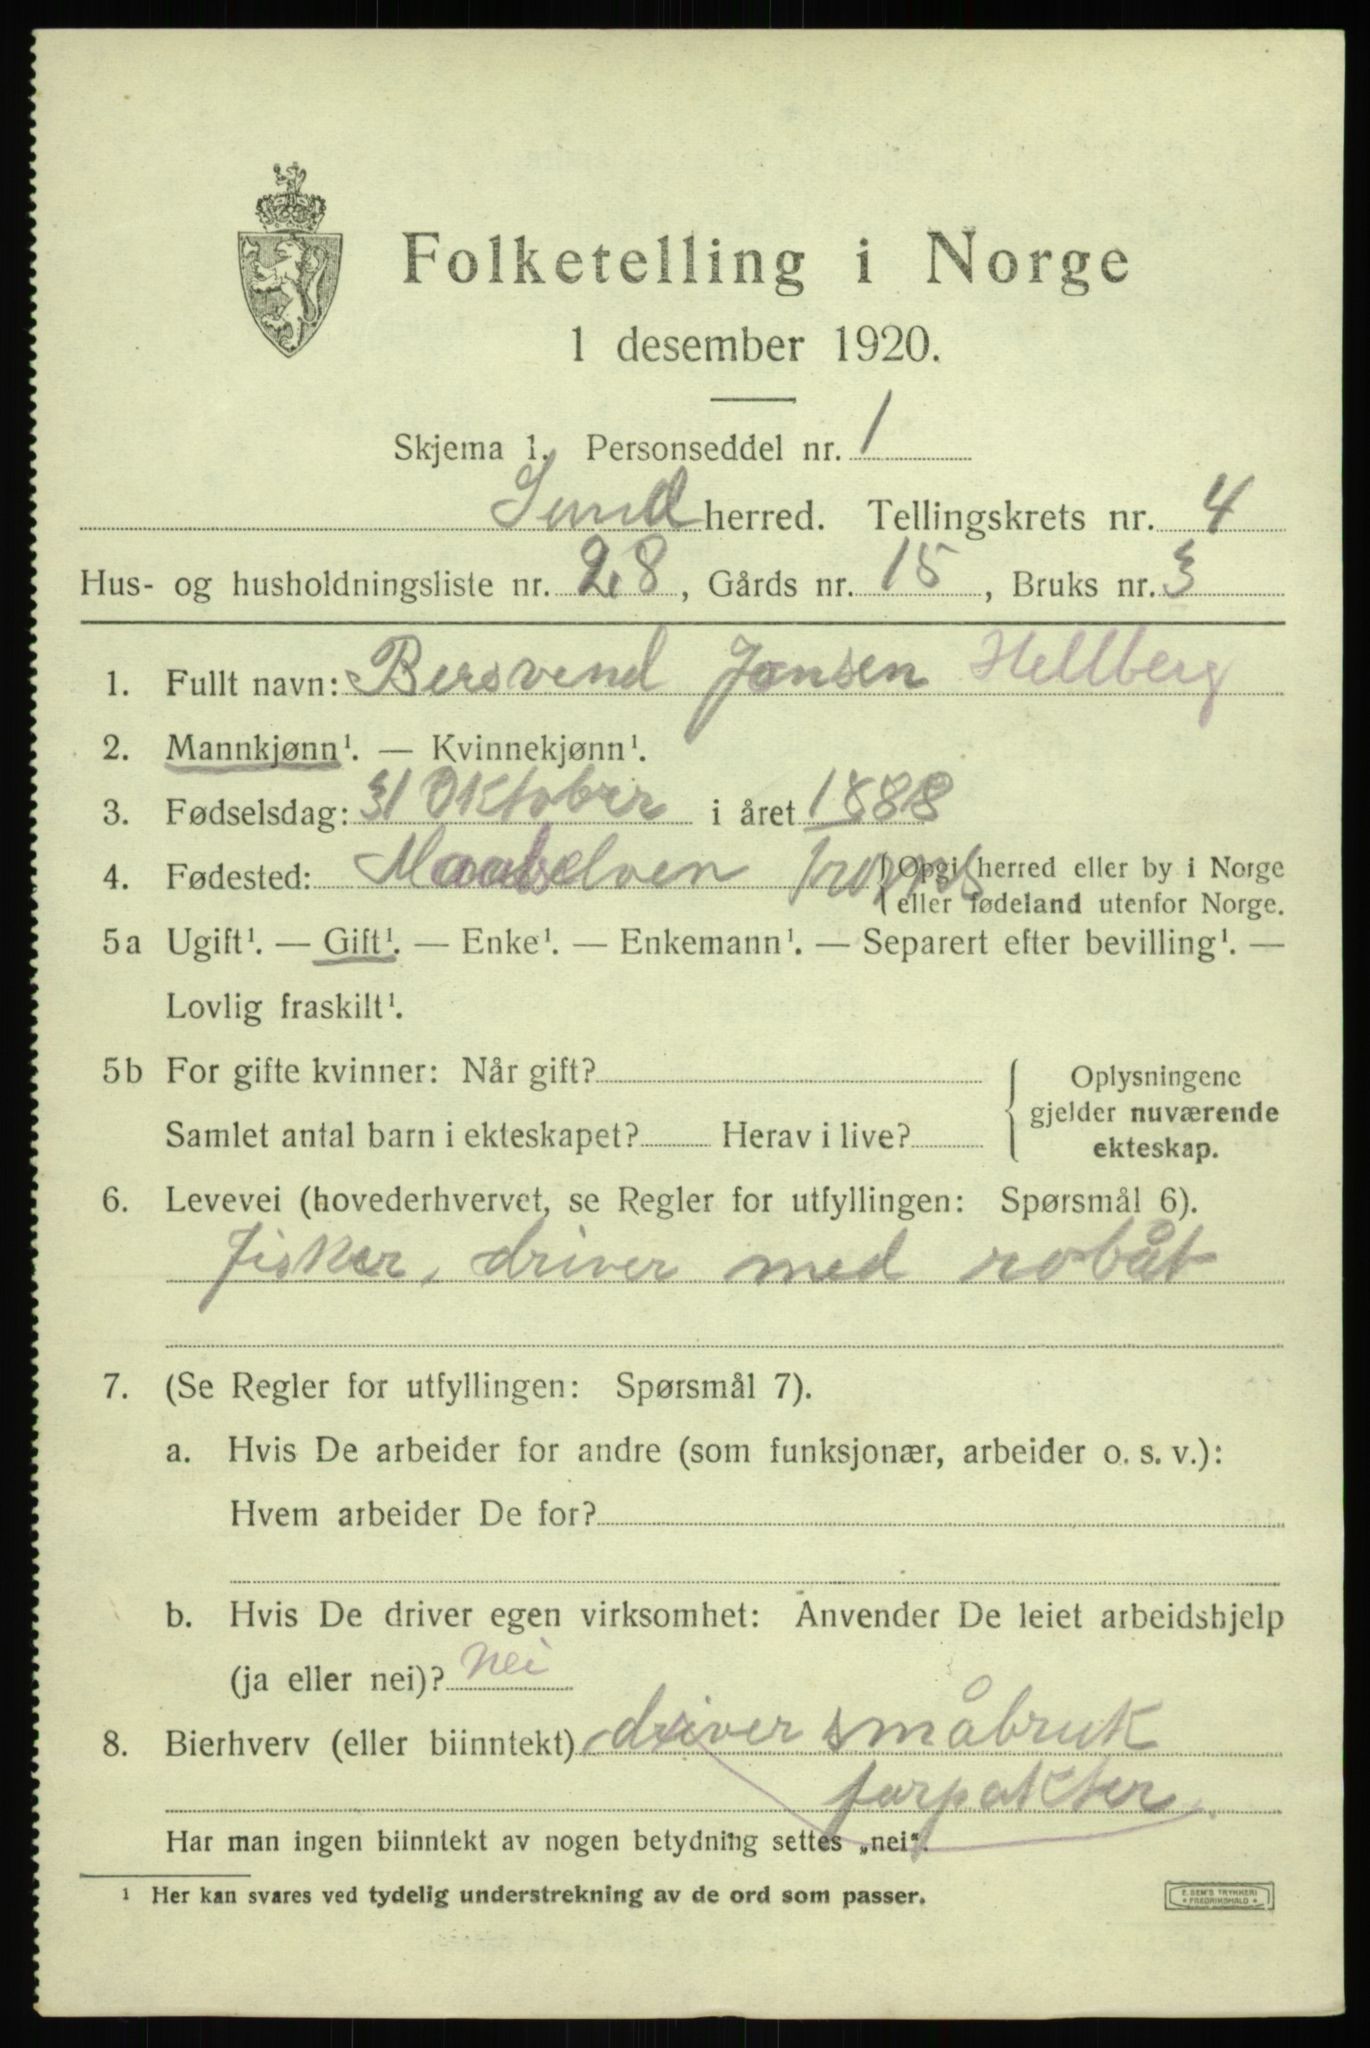 Folketelling i Norge
1 desember 1920.
Skjema 1. Personseddel nr. 1
Sund herred. Tellingskrets nr. 4
Hus- og husholdningsliste nr. 28, Gårds nr. 15, Bruks nr. 3
1. Fullt navn: Bersvend Jonsen Hellberg
2. Mannkjønn¹. — Kvinnekjønn¹.
3. Fødselsdag: 31 Oktober i året 1888
4. Fødested: Maalselven Troms (Opgi herred eller by i Norge
eller fødeland utenfor Norge.
5a Ugift¹. — Gift¹. — Enke¹. — Enkemann¹. — Separert efter bevilling¹. —
Lovlig fraskilt¹.
5b For gifte kvinner: Når gift?
Samlet antal barn i ekteskapet? Herav i live?
Oplysningene
gjelder nuværende
ekteskap.
6. Levevei (hovederhvervet, se Regler for utfyllingen: Spørsmål 6).
Fisker, driver med robåt
7. (Se Regler for utfyllingen: Spørsmål 7).
a. Hvis De arbeider for andre (som funksjonær, arbeider o. s. v.):
Hvem arbeider De for?
b. Hvis De driver egen virksomhet: Anvender De leiet arbeidshjelp
(ja eller nei)? Nei
8. Bierhverv (eller biinntekt) driver småbruk
forpakter
Har man ingen biinntekt av nogen betydning settes „nei".
¹ Her kan svares ved tydelig understrekning av de ord som passer.
E. SEM'S TRYKKERI
FREDRIKSHALD